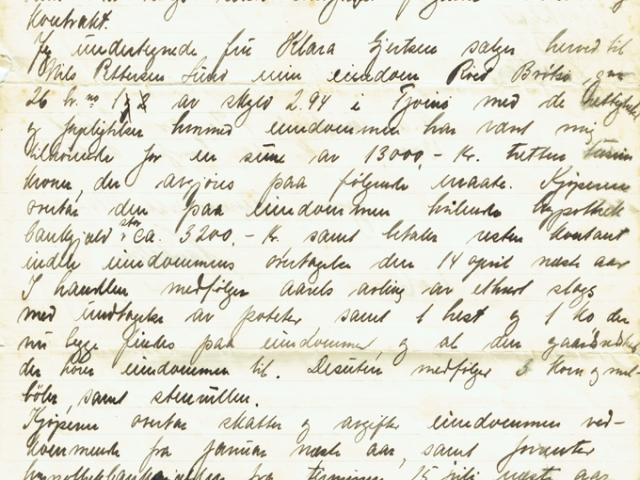 kontrakt.
Jeg undertegnede fru Klara Gjertsen sælger herved til
Nils Pettersen Lund min eiendom Röed Bröttö, gno
26 br. no 1 av skyld 2.94 i med de rettigheter
og herpligtelser hvormed eiendommen har været mig
tilhörende for en sum av 13000,- Kr. tretten tusin
kroner, der avgjöres paa følgende maate. Kjöperen
overtar den paa eiendommen hvilende hypothek
bankgjæld stor ca. 3200,- Kr. samt betaler resten kontant
inden eiendommens overtagelse den 14 april næste aar
I handlen medfølger aarets avling av ethvert slags
med undtagelse av poteter samt 1 hest og 1 ko der
nu begge findes paa eiendommen, og al den
der hører eiendommen til. Desuten medfølger 3 korn og mel-
böler, samt
Kjöperen overtar skatter og avgifter eiendommen ved-
kommende fra januar næste aar, samt forrenter
hypothekbankgjælden fra terminen 15 juli næste aar